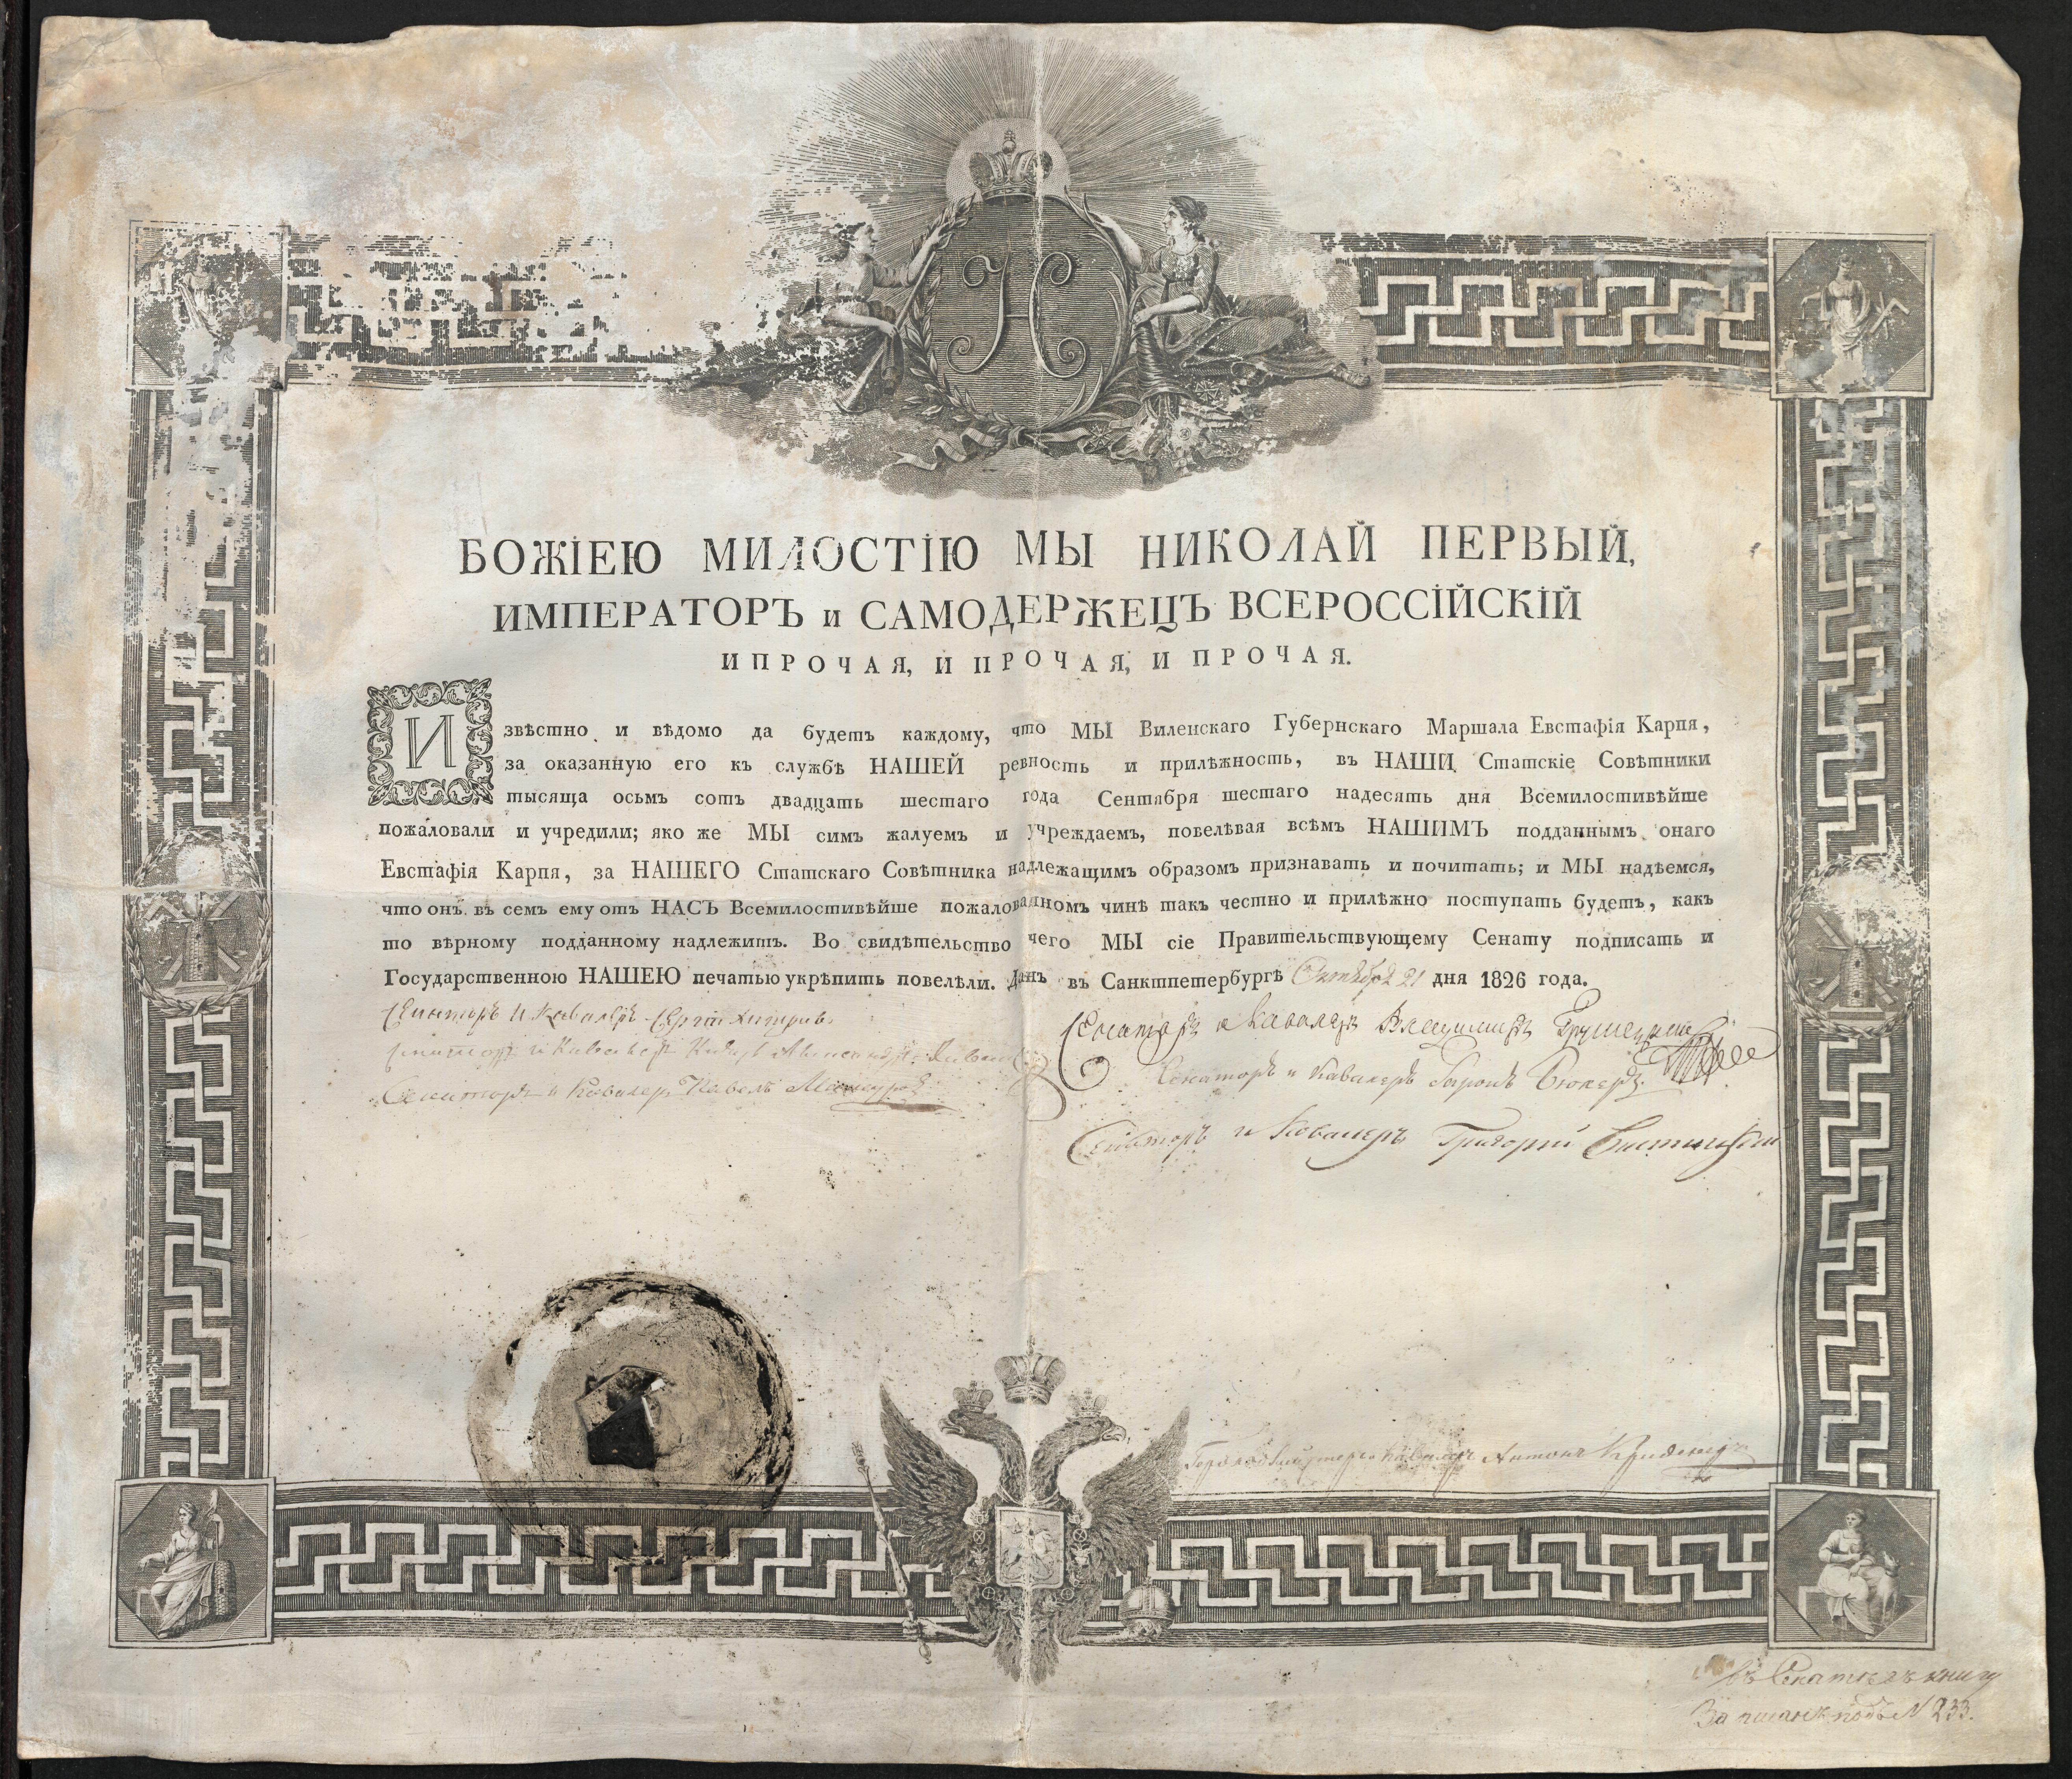 Н
БОЖІЕЮ МИЛОСТІЮ МЫ НИКОЛАЙ ПЕРВЫЙ,
ИМПЕРАТОРЪ и САМОДЕРЖЕЦЪ ВСЕРОССІЙСКІЙ
И ПРОЧАЯ, И ПРОЧАЯ, И ПРОЧАЯ.
Извѣстно и вѣдомо да будетъ каждому, что МЫ Виленскаго Губернскаго Маршала Евстафія Карпя,
за оказанную его къ службѣ НАШЕЙ ревность и прилѣжность, въ НАШИ Статскіе Совѣтники
тысяща осьмъ сотъ двадцать шестаго года Сентября шестаго надесять дня Всемилостивѣйше
пожаловали и учредили; яко же МЫ симъ жалуемъ и учреждаемъ, повелѣвая всѣмъ НАШИМЪ подданнымъ онаго
Евстафія Карпя, за НАШЕГО Статскаго Совѣтника надлежащимъ образомъ признавать и почитать; и МЫ надѣемся,
что онъ въ семъ ему отъ НАСЪ Всемилостивѣйше пожалованномъ чинѣ такъ честно и прилѣжно поступать будетъ, какъ
то вѣрному подданному надлежитъ. Во свидѣтельство чего МЫ сіе Правительствующему Сенату подписать и
Государственною НАШЕЮ печатью укрѣпить повелѣли. Данъ въ Санктпетербургѣ Октября 21 дня 1826 года.
Сенаторъ и Кавалеръ Сергій
Сенаторъ и Кавалеръ Владимиръ
Сенаторъ и Кавалеръ Князь
Сенаторъ и Кавалеръ Баронъ
Сенаторъ и Кавалеръ Павелъ
Сенаторъ и Кавалеръ Григорій
Кавалеръ Антонъ
въ книгу
Записанъ подъ N 233.